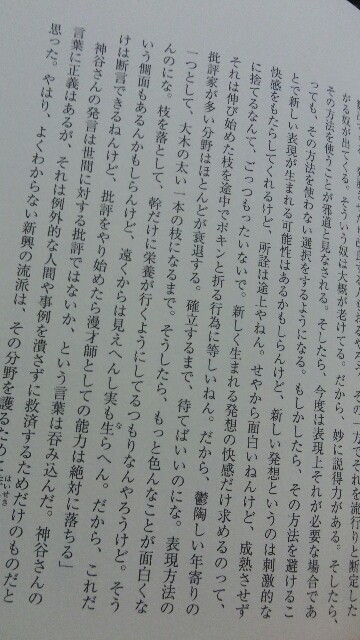 がる奴が出てくる。そういう奴は大概が老けてる。だから、妙に説得力がある。そしたら、
その方法を使うことが邪道と見なされる。そしたら、今度は表現上それが必要な場合であ
っても、その方法を使わない選択をするようになる。もしかしたら、その方法を避けるこ
とで新しい表現が生まれる可能性はあるかもしらんけど、新しい発想というのは刺激的な
快感をもたらしてくれるけど、所詮は途上やねん。せやから面白いねんけど、成熟させず
に捨てるなんて、ごっつもったいないで。新しく生まれる発想の快感だけ求めるのって、
それは伸び始めた枝を途中でポキンと折る行為に等しいねん。だから、鬱陶しい年寄りの
批評家が多い分野はほとんどが衰退する。確立するまで、待てばいいのにな。表現方法の
一つとして、大木の太い一本の枝になるまで。そうしたら、もっと色んなことが面白くな
んのにな。枝を落として、幹だけに栄養が行くようにしてるつもりなんやろうけど。そう
いう側面もあるんかもしらんけど、遠くからは見えへんし実も生らへん。だから、これだ
けは断言できるねんけど、批評をやり始めたら漫才師としての能力は絶対に落ちる」
神谷さんの発言は世間に対する批評ではないか、という言葉は吞み込んだ。神谷さんの
言葉に正義はあるが、それは例外的な人間や事例を潰さずに救済するためだけのものだと
思った。やはり、よくわからない新興の流派は、その分野を護るために